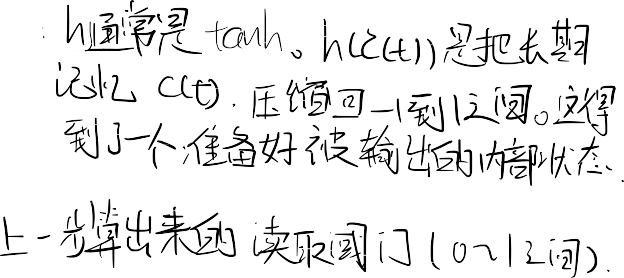 ：h通常是 tanh。h(c(t))是把长期
记忆 c(t)，压缩回-1到1之间。这得
到了一个准备好被输出的内部状态.
上一步算出来的 读取阀门(0~1之间).